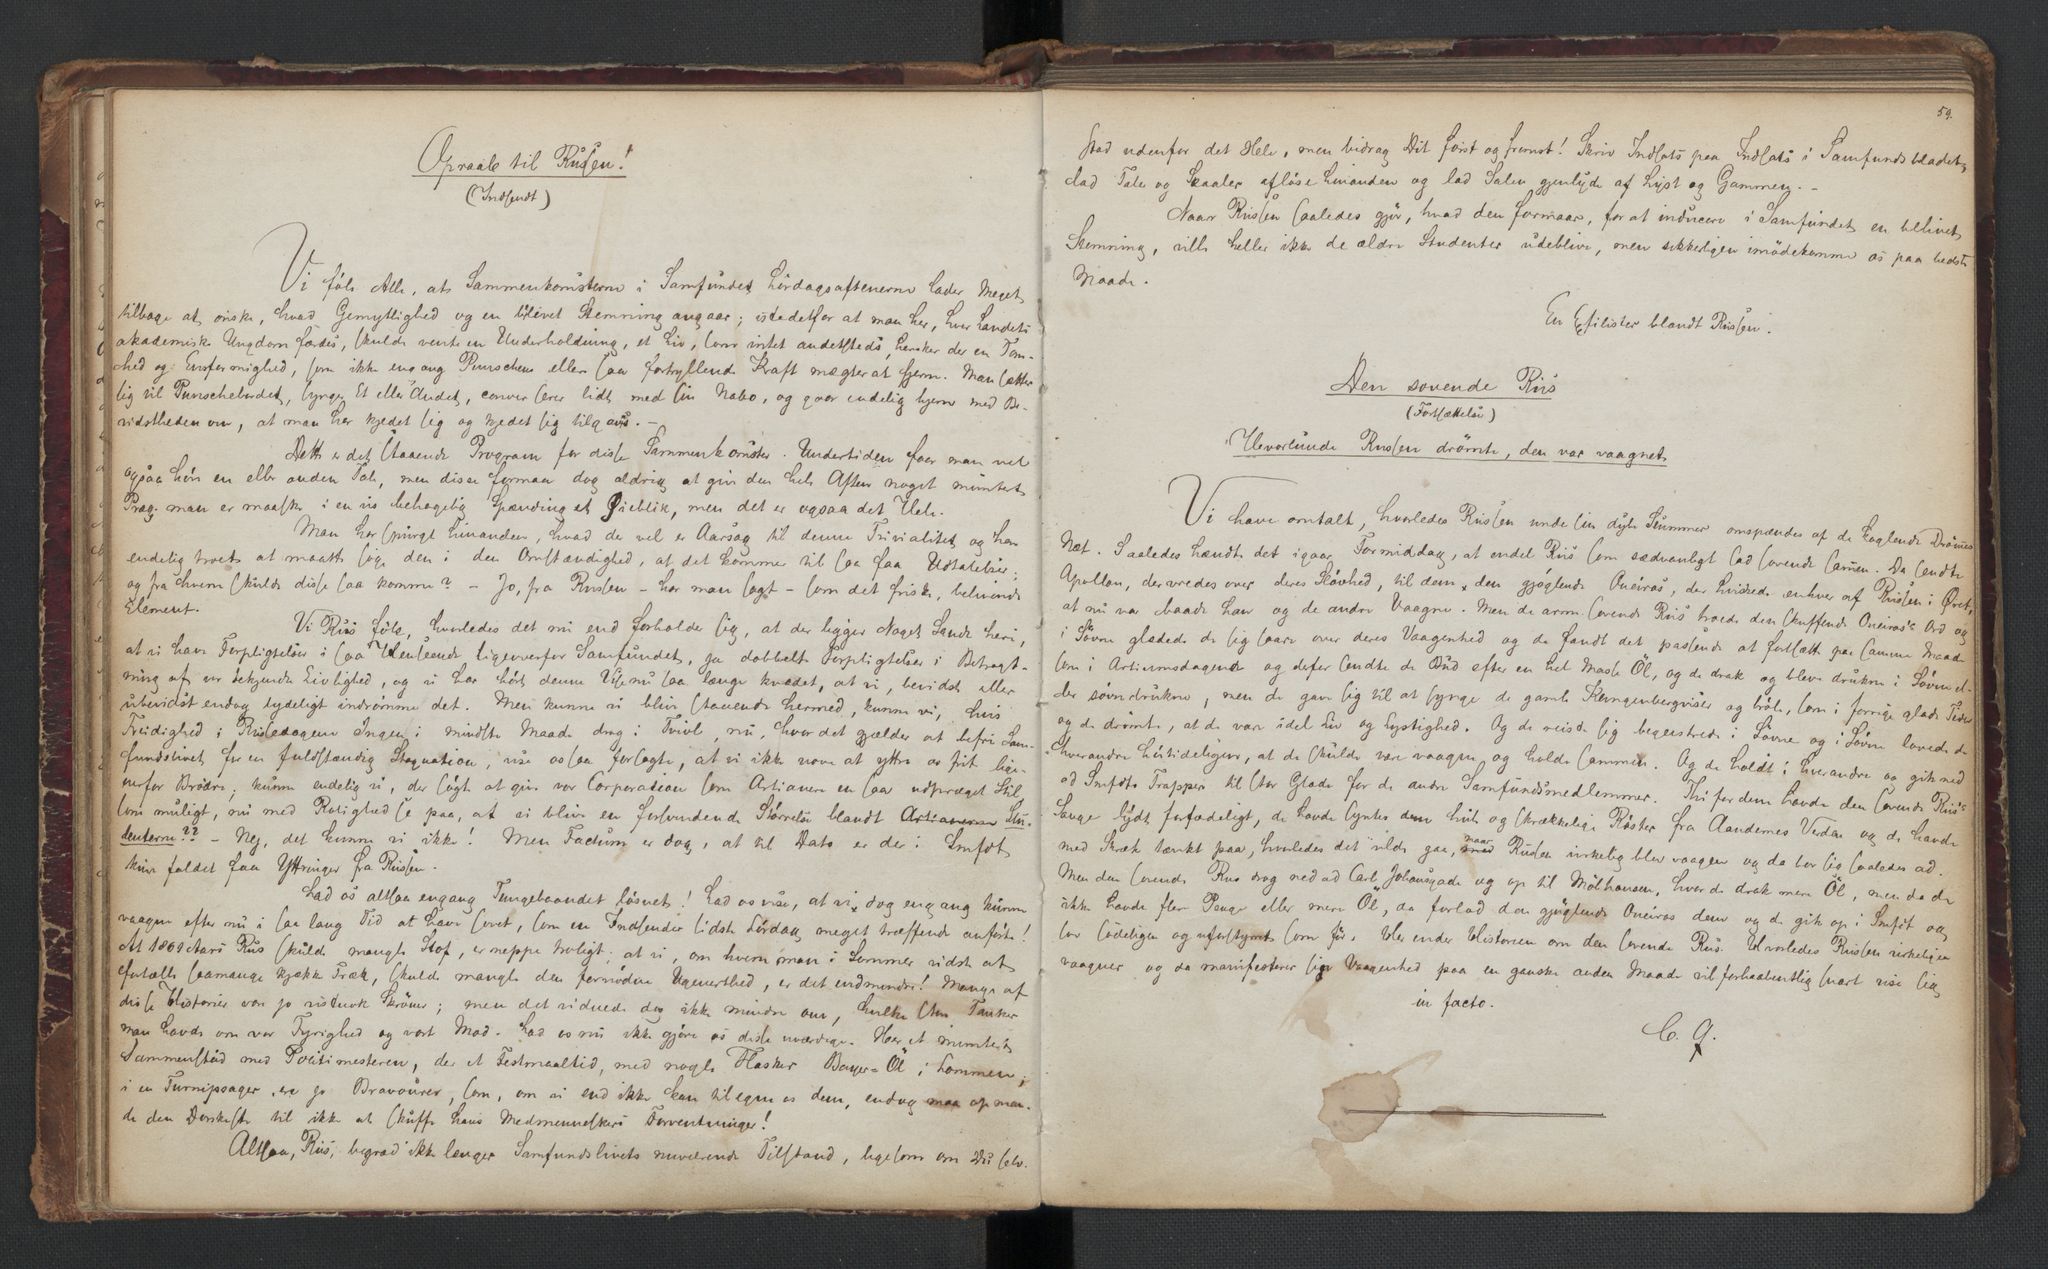 Opraab til Russen!
(Indsendt)
Vi føle Alle, at Sammenkomsterne i Samfundet Lørdagsaftenerne lader Meget
tilbage at ønske, hvad Gemytlighed og en livet Stemning angaar; istedetfor at man her, hvor Landets
akademiske Ungdom færdes, skulde vente en Underholdning, et Liv, som intet andetsteds, hersker der en Tom-
hed og Ensformighed, som ikke engang Punschens ellers saa fortryllende Kraft mægter at fjerne. Man sætter
sig til Punschebordet, synger Et eller Andet, converserer lidt med sin Nabo, og gaar endelig hjem med Be-
vidstheden om, at man har kjedet sig og kjedet sig tilgavns. –
Dette er det staaende Program for disse Sammenkomster. Undertiden faar man vel
ogsaa høre en eller anden Tale, men disse formaa dog aldrig at give den hele Aften noget muntert
Præg. man er maaske i en vis behagelig Spænding et Øieblik, men det er ogsaa det Hele.
Man har spurgt hinanden, hvad der vel er Aarsag til denne Trivialitet og har
endelig troet at maatte søge den i den Omstændighed, at det kommer til saa faa Udtalelser;
og fra hvem skulde disse saa komme? – Jo, fra Russen – har man sagt – som det friske, belivende
Element.
Vi Rus føle, hvorledes det nu end forholder sig, at der ligger Noget Sandt heri,
at vi have Forpligtelser i saa Henseende ligeoverfor Samfundet, ja dobbelte Forpligtelser i Betragt-
ning af vor bekjendte Livlighed, og vi har hørt denne Vise nu saa længe kvædet, at vi, bevidst eller
ubevidst endog lydeligt indrømme det. Men kunne vi blive staaende hermed, kunne vi, hvis
Freidighed i Russedagene Ingen i mindste Maade drog i Tvivl, nu, hvor det gjælder at befri Sam-
fundslivet for en fuldstændig Stagnation, vise os saa forsagte, at vi ikke vove at yttre os frit lige-
overfor Brødre; kunne endelig vi, der søgte at give vor Corporation som Artianere en saa udpræget Stil
som muligt, nu med Rolighed se paa, at vi blive en forsvindende Størrelse blandt Artianerne Stu-
denterne?? – Nej, det kunne vi ikke! Men Factum er dog, at til Dato er der i Smfdt
kun faldet faa Yttringer fra Russen.
Lad os altsaa engang Tungebaandet løsnet! Lad os vise, at vi dog engang kunne
vaagne efter nu i saa lang Tid at have sovet, som en Indsender sidste Lørdag meget træffende anførte!
At 1869 Aars Rus skulde mangle Stof, er neppe troligt; at vi, om hvem man i Sommer vidste at
fortælle saamange kjække Træk, skulde mangle den fornødne Ugenerthed, er det endmindre! Mange af
disse Historier var jo vistnok Skrøner; men det vidnede dog ikke mindre om, hvilke store Tanker
man havde om vor Fyrighed og vort Mod. Lad os nu ikke gjøre os disse uværdige. Havt et muntert
Sammenstød med Politimesteren, der et Festmaaltid, med nogle Flasker Bayer-Öl i Lommen,
i en Turnipsager, ere jo Bravourer, som, om vi end ikke kan tilegne os dem, endog maa opman-
de den Dorskeste til ikke at skuffe hans Medmenneskers Forventninger!
Altsaa, Rus, begræd ikke længer Samfundslivets nuværende Tilstand, ligesom om Du selv
59.
stod udenfor det Hele, men bidrag Dit først og fremst! Skriv Indlæg paa Indlæg i Samfundsbladet,
lad Tale og Skaaler afløse hinanden og lad Salen gjenlyde af Lyst og Gammen. –
Naar Russen saaledes gjør, hvad den formaar, for at inducere i Samfundet en oplivet
Stemning, ville heller ikke de ældre Studenter udeblive, men sikkerligen imødekomme os paa bedste
Maade.
En Filister blandt Russen.
Den sovende Rus
(Fortsættelse)
Hvorlunde Russen drømte, den var vaagnet
Vi have omtalt, hvorledes Russen under sin dybe Slummer omspændes af de koglende Drømmes
Næt. Saaledes hændte det igaar Formiddag, at endel Rus som sædvanligt lad sovende sammen. Da sendte
Apollon, der vredes over deres Sløvhed, til dem den gjøglende Oneiros, der hviskede enhver af Russen i Øret,
at nu var baade han og de andre Vaagne. Men de arme sovende Rus troede den skuffende Oneiros's Ord og
i Søvne glædede de sig saare over deres Vaagenhed og de fandt det passende at fortsætte paa samme Maade
som i Artiumsdagene og derfor sendte de Bud efter en hel Masse Öl, og de drak og bleve drukne i Søvne el-
ler søvndrukne, men de gave sig til at synge de gamle Klingenbergviser og hørte, som i forrige glade Tider
og de drømte, at de var idel Liv og Lystighed. Og de reiste sig begeistrede i Søvne og i Søvne lovede de
hverandre høitideligen, at de skulde være vaagne og holde sammen. Og de holdt i hverandre og gik ned
ad Smfdts Trapper til stor Glæde for de andre Samfundsmedlemmer. Thi for dem havde den sovende Rus's
Sange lydt forfædeligt, de havde syntes dem hule og skrækkelige Røster fra Aandernes Verden og de havde
med Skræk tænkt paa, hvorledes det vilde gaa, naar Russen virkelig blev vaagen og da lod sig saaledes ad.
Men den sovende Rus drog ned ad Carl Johansgade og op til Mölhausen, hvor de drak mere Öl, men da de
ikke havde flere Penge eller mere Öl, da forlod den gjøglende Oneiros dem og de gik op i Smfdt og
sov sødeligen og uforstyrret som før. Her ender Historien om den sovende Rus. Hvorledes Russen virkeligen
vaagner og da manifesterer sin Vaagenhed paa en ganske anden Maade vil forhaabentlig snart vise sig
in facto.
C. G.